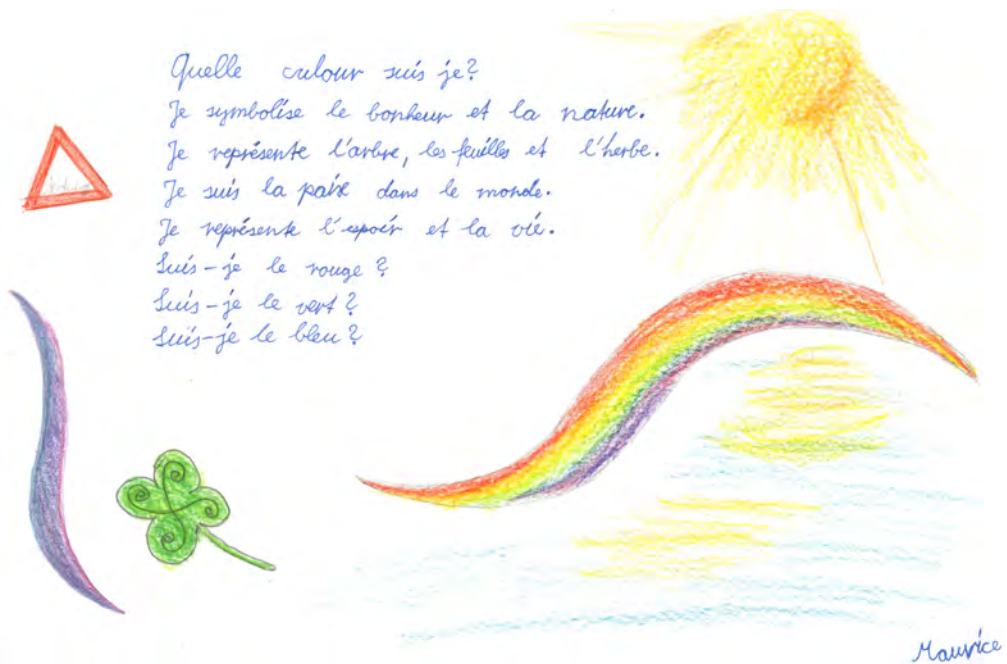 Quelle culour suis je?
Je symbolise le bonheur et la nature.
Je représente l'arbre, les feuilles et l'herbe.
Je suis la paix dans le monde.
Je représente l'espoir et la vie.
Suis-je le rouge?
Suis-je le vert?
Suis-je le bleu?
Maurice